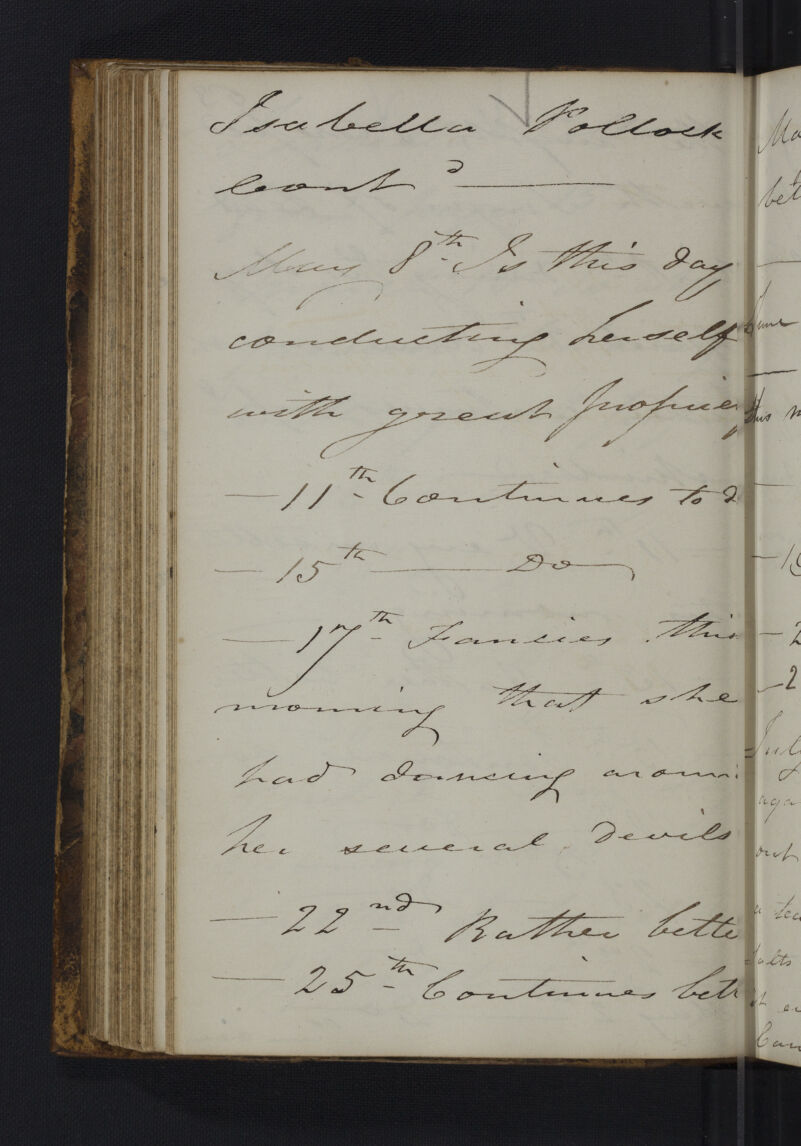 Isabella Pollock
Cont.d
May 8th. Is this day
conducting herself
with great proprie
— 11th. Continues to d
— 15th — Do
— 17th. Fancies this
morning that she
had dancing aroun
her several devils
— 22nd. Rather bette
— 25th. Continues bett
Ma
bet
June
this m
— 2
— 2
July
aga
out
a tea
Salts